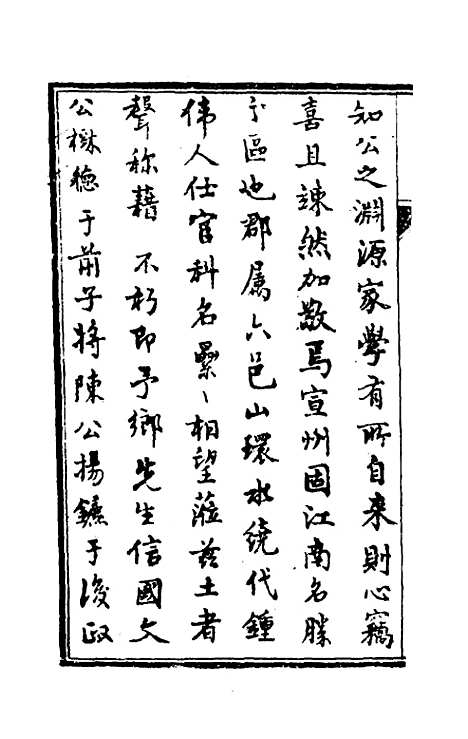 知公之淵源家學有所自來則心竊
喜且竦然加敬焉宣州固江南名勝
之區也郡属六邑山環水繞代鍾
偉人仕宦科名纍〻相望蒞茲土者
聲称藉 不朽即予鄉先生信國文
公樹德于前子将陳公揚鑣于後政